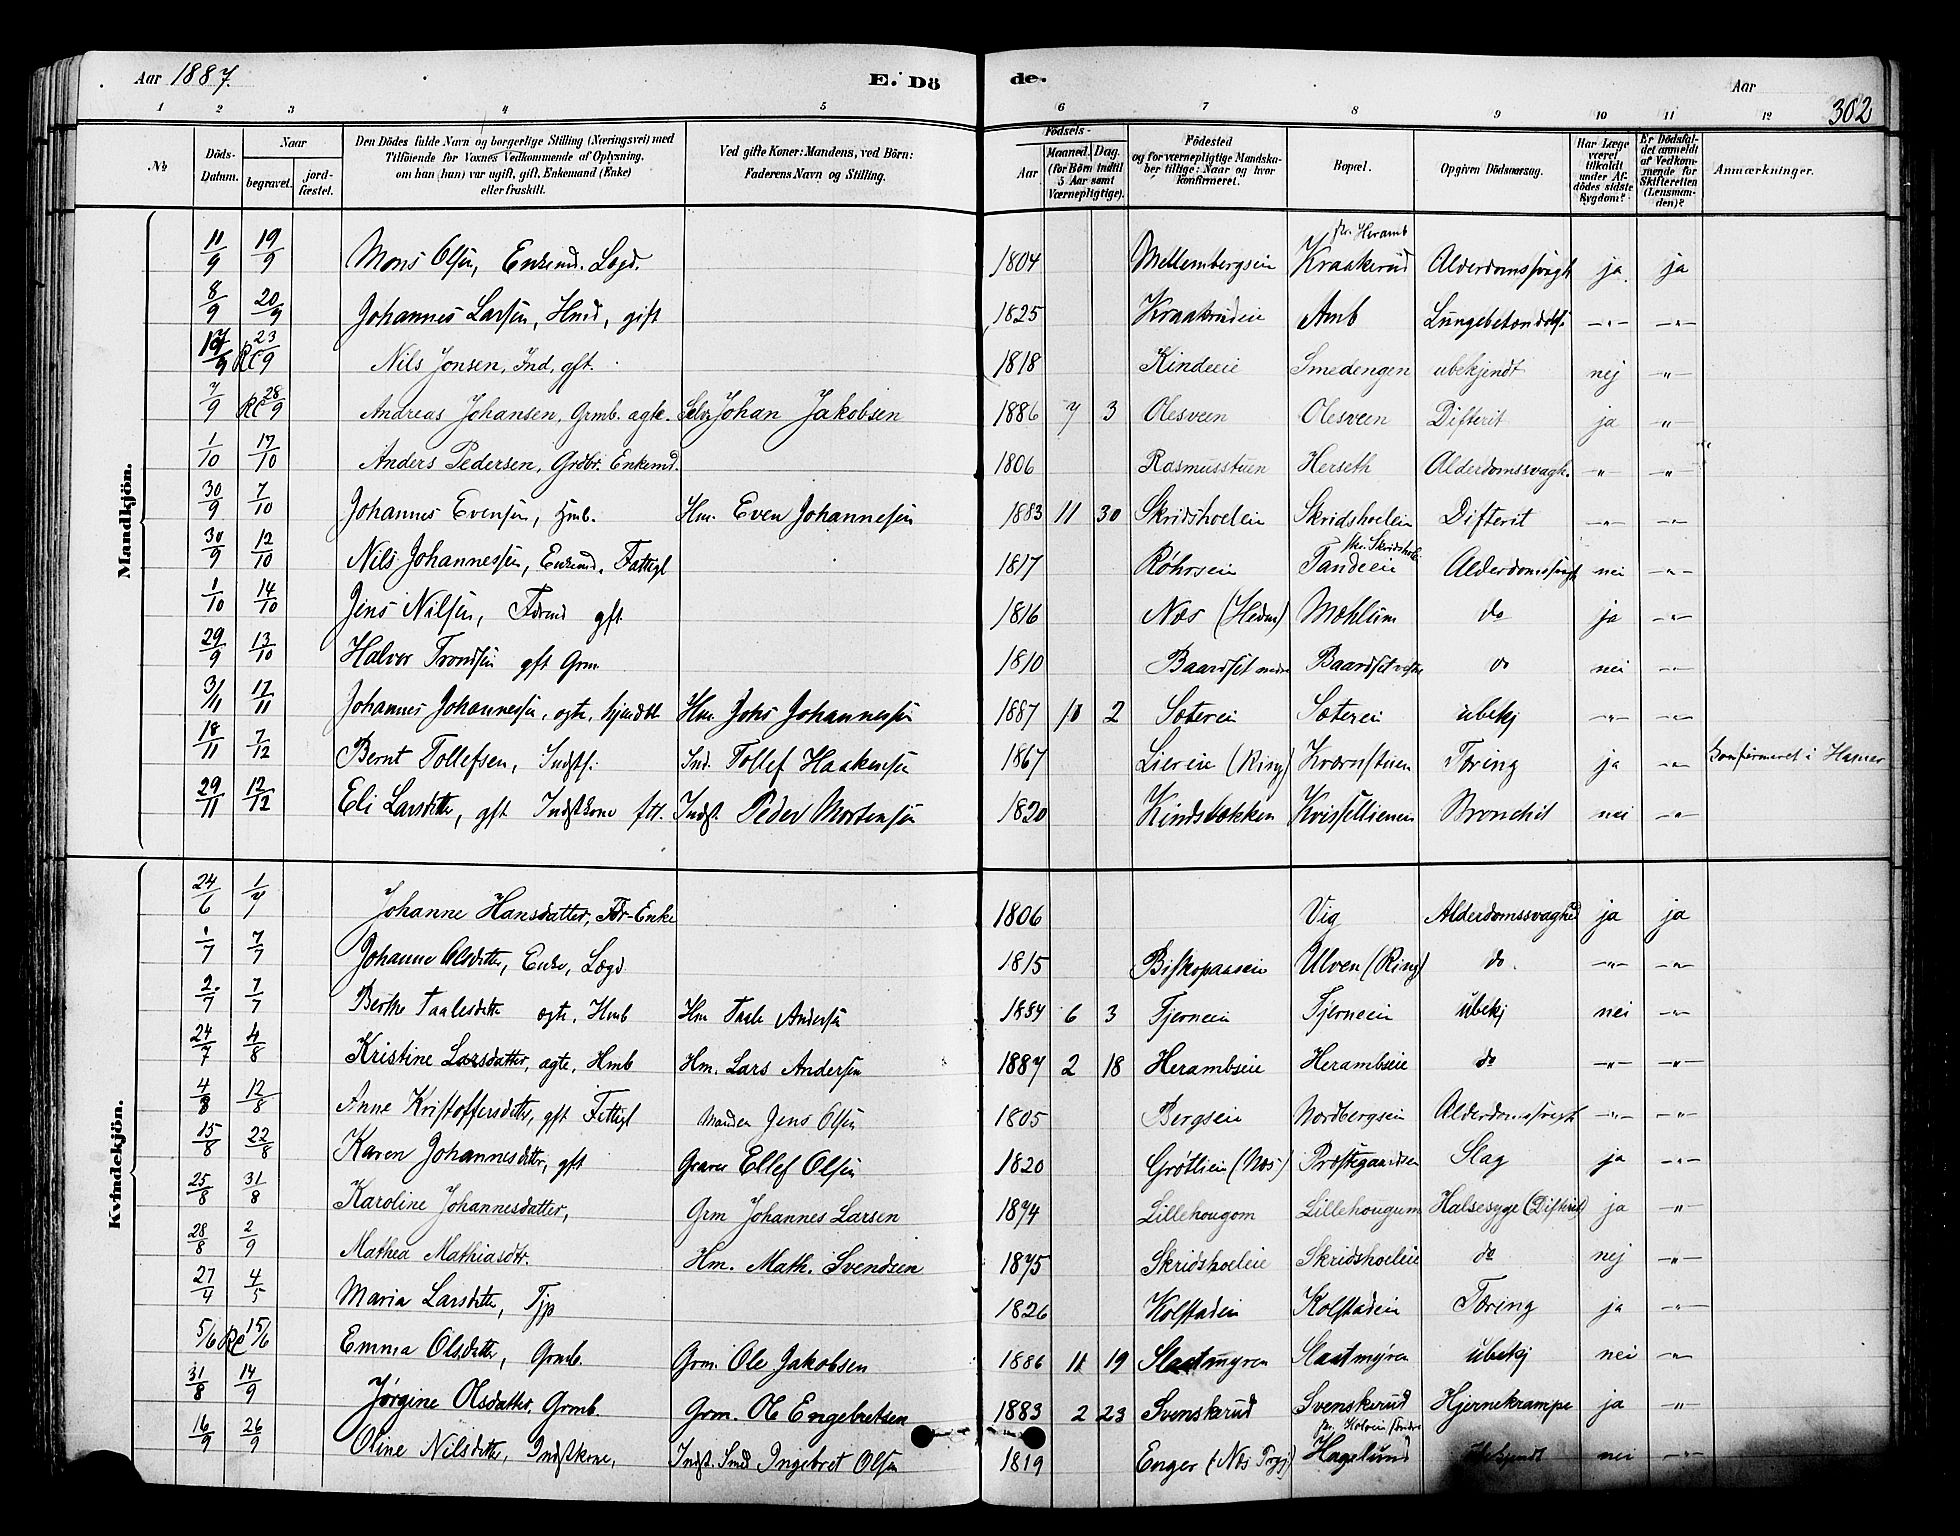 Aar 1887.
E. Dö
de.
Aar
302
1 2 3 4 5 6 7 8 9 10 11 12
No.
Döds-Datum.
Naar
begravet.
jord-fæstet.
Den Dödes fulde Navn og borgerlige Stilling (Næringsvei) med Tilföiende for Voxnes Vedkommende af Oplysning, om han (hun) var ugift, gift, Enkemand (Enke) eller fraskilt.
Ved gifte Koner: Mandens, ved Börn: Faderens Navn og Stilling.
Födsels-
Aar
Maaned. Dag.
(for Börn indtil 5 Aar samt Værnepligtige).
Födested og for værnepligtige Mandskaber tillige: Naar og hvor konfirmeret.
Bopæl.
Opgiven Dödsaarsag.
Har Læge været tilkaldt under Afdödes sidste Sygdom?
Er Dödsfaldet anmeldt af Vedkommende for Skifteretten (Lensmanden)?
Anmærkninger.
Mandkjön.
11/9 19/9 Mons Olsen, Enkemd. Lægd. 1804 Mellembergseie Kraakerud pr. Heramb Alderdomssvagh ja. ja
8/9 20/9 Johannes Larsen, Hmd, gift 1825 Kraakrudeie Amb Lungebetændelse -"- -"-
17/9 RC 23/9 Nils Jonsen, Ind, gft. 1818 Kindeeie Smedengen ubekjendt nej "
7/9 RC 28/9 Andreas Johansen, Grmb. ægte. Selv. Johan Jakobsen 1886 7 3 Olesveen Olesveen Difterit ja "
1/10 17/10 Anders Pedersen, Grdbr. Enkemd. 1806 Rasmusstuen Herseth Alderdomssvagh. " "
30/9 7/10 Johannes Evensen, Hmb. Hm. Even Johannesen 1883 11 30 Skridsholeie Skridsholeie Difterit -"- -"-
30/9 12/10 Nils Johannessen, Enkemd, Fattigl 1817 Røhrseie Tandeeie Alderdomssvagh nei -"-
1/10 14/10 Jens Nilsen, Fdrmd gft 1816 Næs (Hedm) Mæhlum do ja -"-
29/9 13/10 Halvor Trondsen gft Grm 1810 Baardset nedre Baardset vestre do nei -"-
3/11 17/11 Johannes Johannessen, ægte, hjemdbt Hm. Johs Johannessen 1887 10 2 Sætereie Sætereie ubekj -"- -"-
18/11 7/12 Bernt Tollefsen, Indsts: Ind. Tollef Haakensen 1867 Liereie (Ring) Kværnstuen Tæring ja -"- Konfirmeret i Hamar
29/11 12/12 Eli Larsdtter, gft Indstkone ftl. Indst. Peder Mortensen 1820 Kindsbækken Kvisellienen Bronchit nei -"-
Kvindekjön.
24/6 1/7 Johanne Hansdatter, Fdr-Enke 1806 Vig Alderdomssvaghed ja ja
1/7 7/7 Johanne Olsdtter, Enke, Lægd 1815 Biskopaaseie Ulven (Ring) do. -"- -"-
2/7 7/7 Berthe Paalesdtter ægte, Hmb Hm Paale Andersen 1884 6 3 Tjerneeie Tjerneeie ubekj nei -"-
24/7 4/8 Kristine Larsdatter, ægte, Hmb Hm. Lars Andersen 1887 2 18 Herambseie Herambseie do -"- -"-
4/8 12/8 Anne Kristoffersdtter, gft Fattigl Manden Jens Olsen 1805 Bergseie Nordbergseie Alderdomssvagh -"- -"-
15/8 22/8 Karen Johannesdtter, gft Graver Ellef Olsen 1820 Grøtlien (Næs) Præstegaardseie Slag ja -"-
25/8 31/8 Karoline Johannesdatter, Grm Johannes Larsen 1874 Lillehougom Lillehougum Halsesyge (Difterit) ja "
28/8 2/9 Mathea Mathiasdtr. Hm. Math. Svendsen 1875 Skridshoeleie Skridshoeleie do nej "
27/4 4/5 Maria Larsdtter, Tjp 1826 Kolstadeie Kolstadeie Tæring ja -"-
5/6 RC 15/6 Emma Olsdtter, Grmb. Grm. Ole Jakobsen 1886 11 19 Slaatmyren Slaatmyren ubekj nei -"-
31/8 14/9 Jørgine Olsdatter, Grmb. Grm. Ole Engebretsen 1883 2 23 Svenskerud Svenskerud Hjernekrampe ja "
16/9 26/9 Oline Nilsdtter, Indstkone, Indst. Smd Ingebret Olsen 1819 Enger (Næs Prgj) Hagelund ubekjendt nei -"-